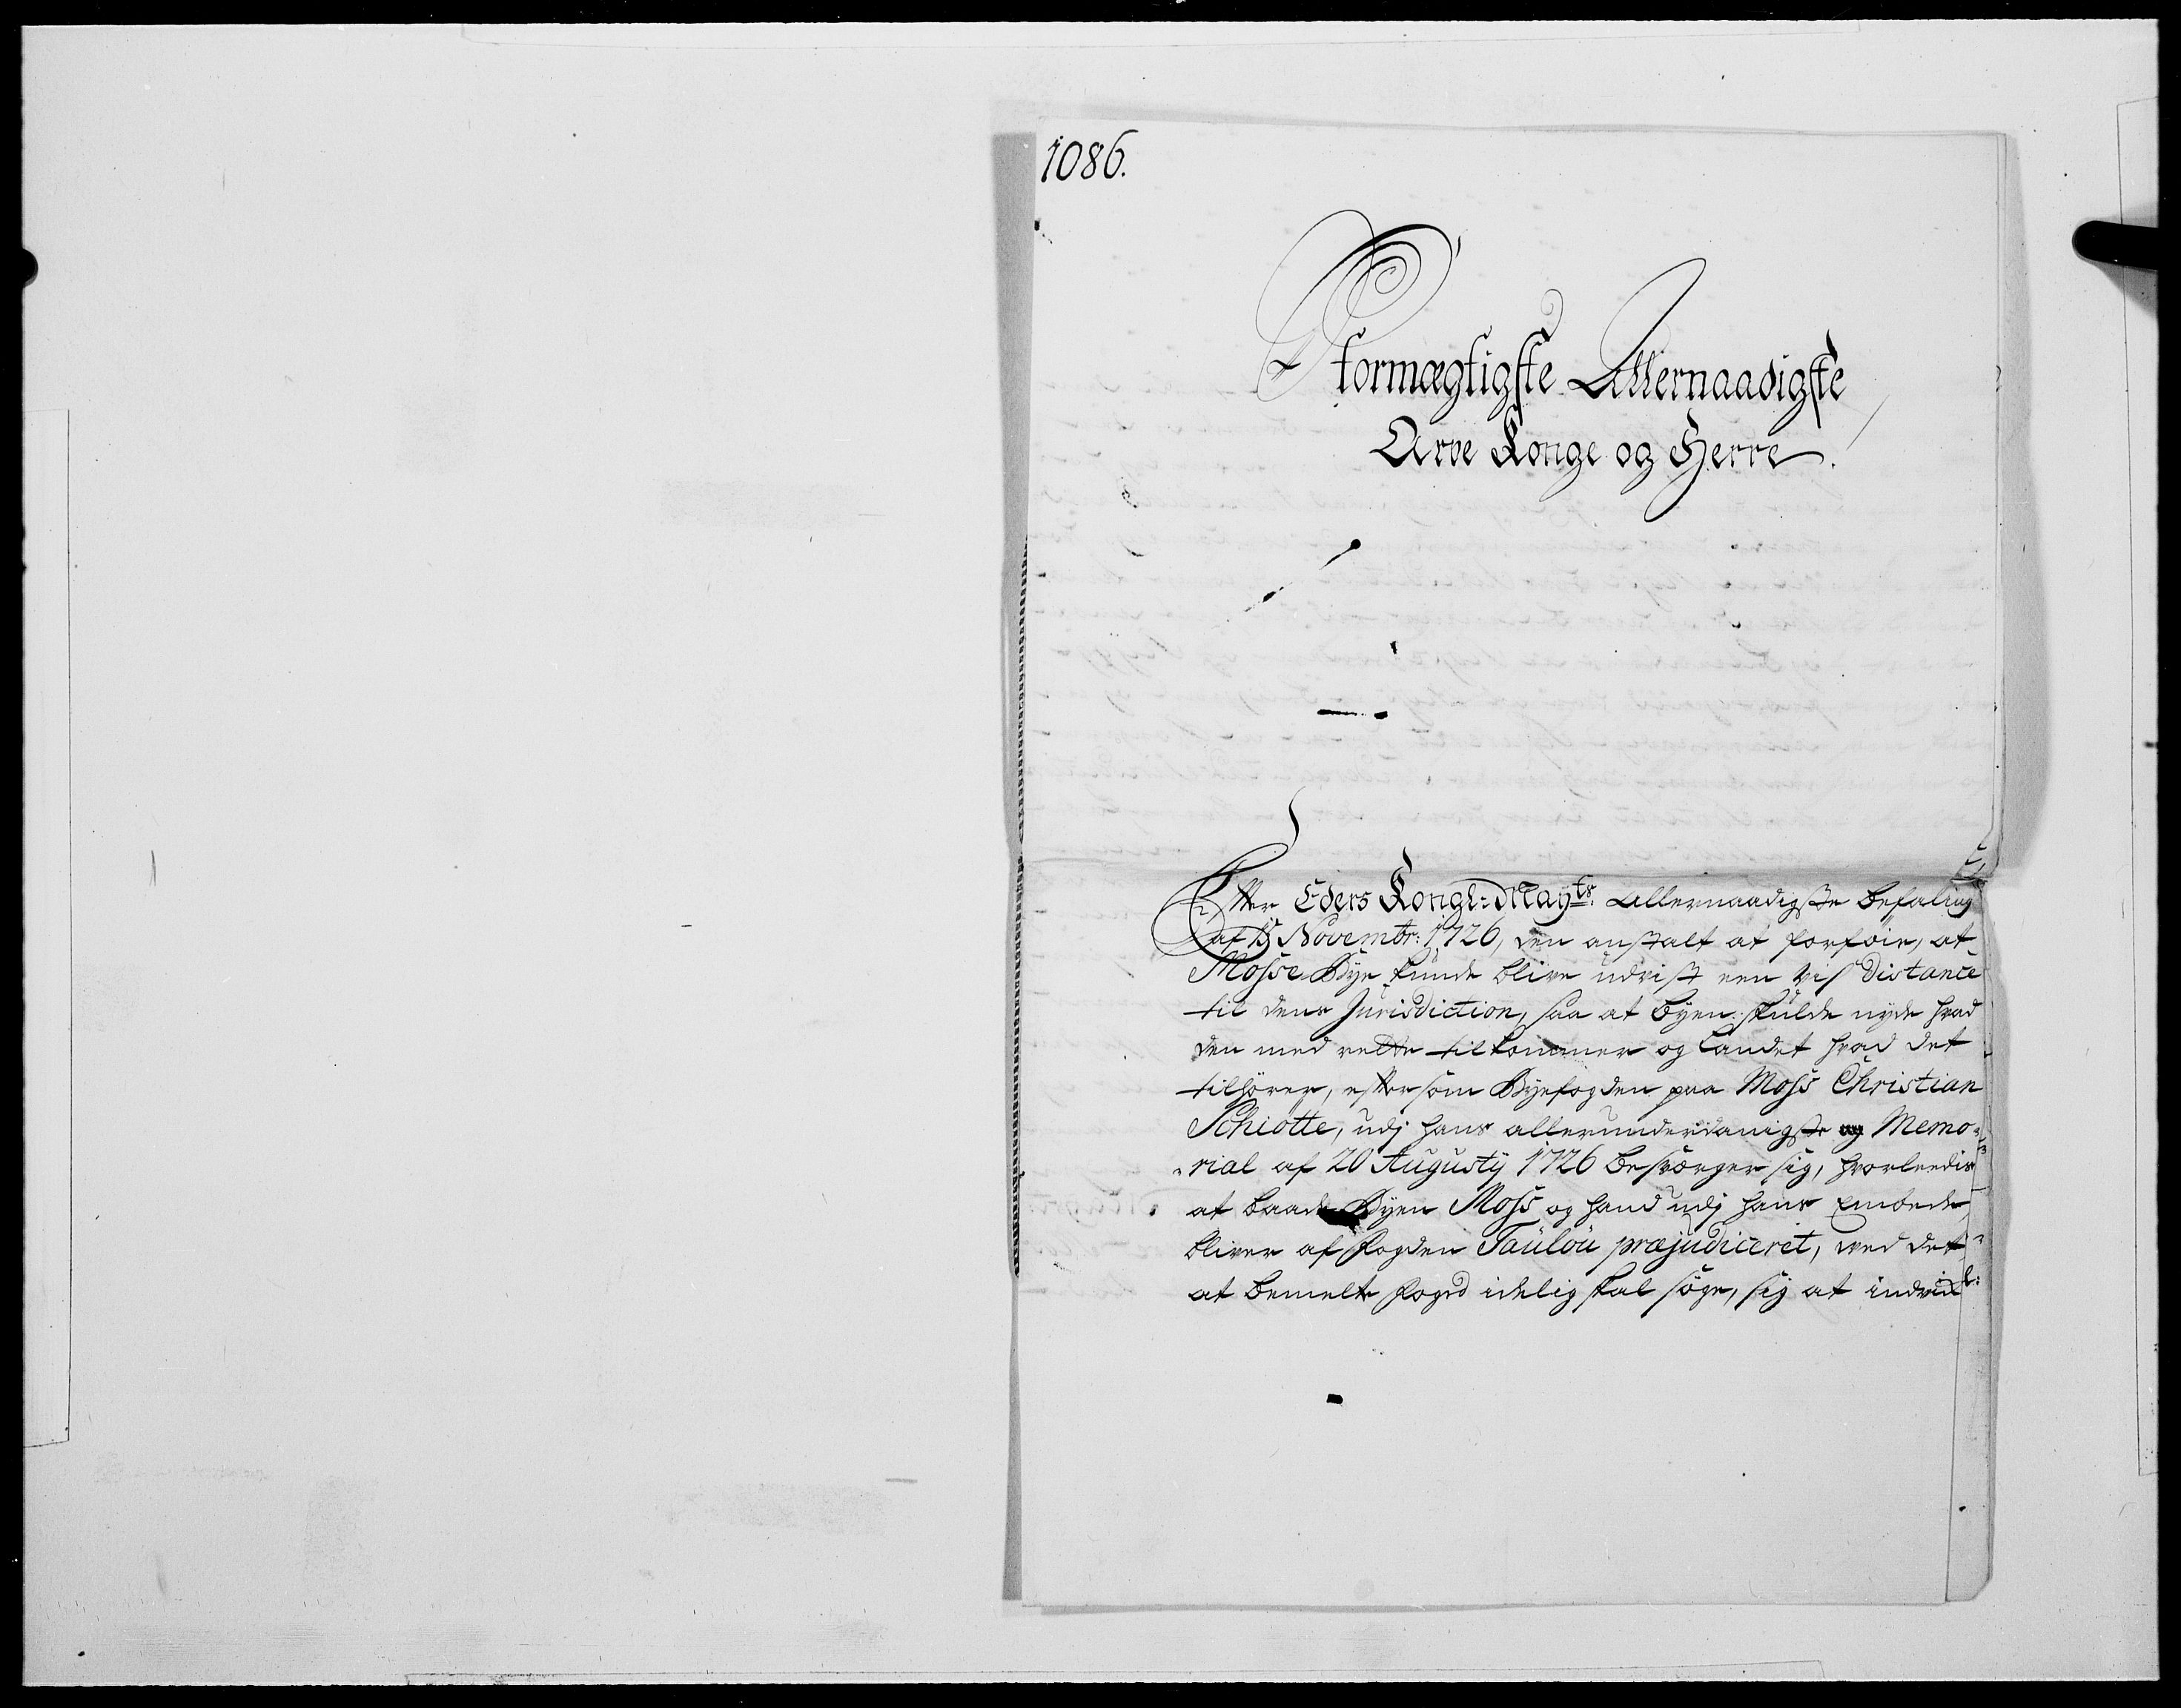 1086.
Stormægtigste Allernaadigste
Arve Konge og Herre.
Efter Eders Kongl: Mayts: Allernaadigste befaling
af 15 Novembr: 1726, den anstalt at forføie, at
Mosse Bye kunde blive udvist een vis Distance
til dens Jurisdiction, saa at byen skulde nyde hvad
den med rette tilkommer og landet hvad det
tilhører, eftersom Byefogden paa Moss Christian
Schiøtte, udj hans allerunderdanigste og Memo-
-rial af 20 Augusty 1726 besværger sig, hvorleedis
at baade Byen Moss og hand udj hans Embede,
bliver af Fogden Taulou præjudiceret, ved det
at bemelte Foged idelig skal søge, sig at indvikl: